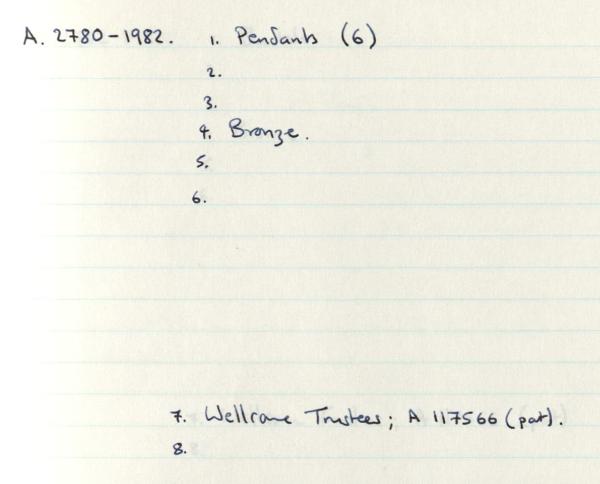 A. 2780-1982. 1. Pendants (6)
2.
3.
4. Bronze.
5.
6.
7. Wellcome Trustees; A 117566 (part).
8.